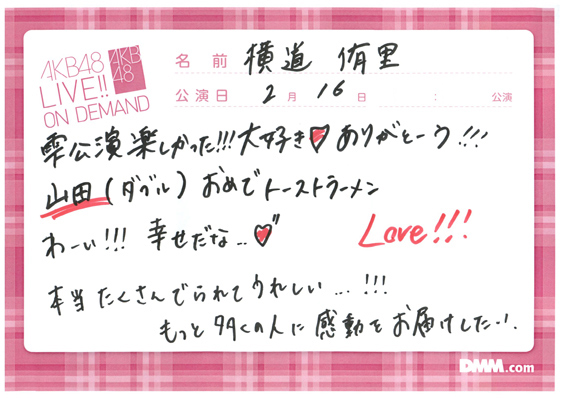 AKB48
LIVE!!
ON DEMAND
AKB
48
名前 横道 侑里
公演日 2月 16日 : 公演
雫公演楽しかった!!!大好き♥ありがとーう!!!
山田(ダブル)おめでトーストラーメン
わーい!!! 幸せだな...♥
Love!!!
本当たくさんでられてうれしい...!!!
もっと多くの人に感動をお届けしたい!.
DMM.com